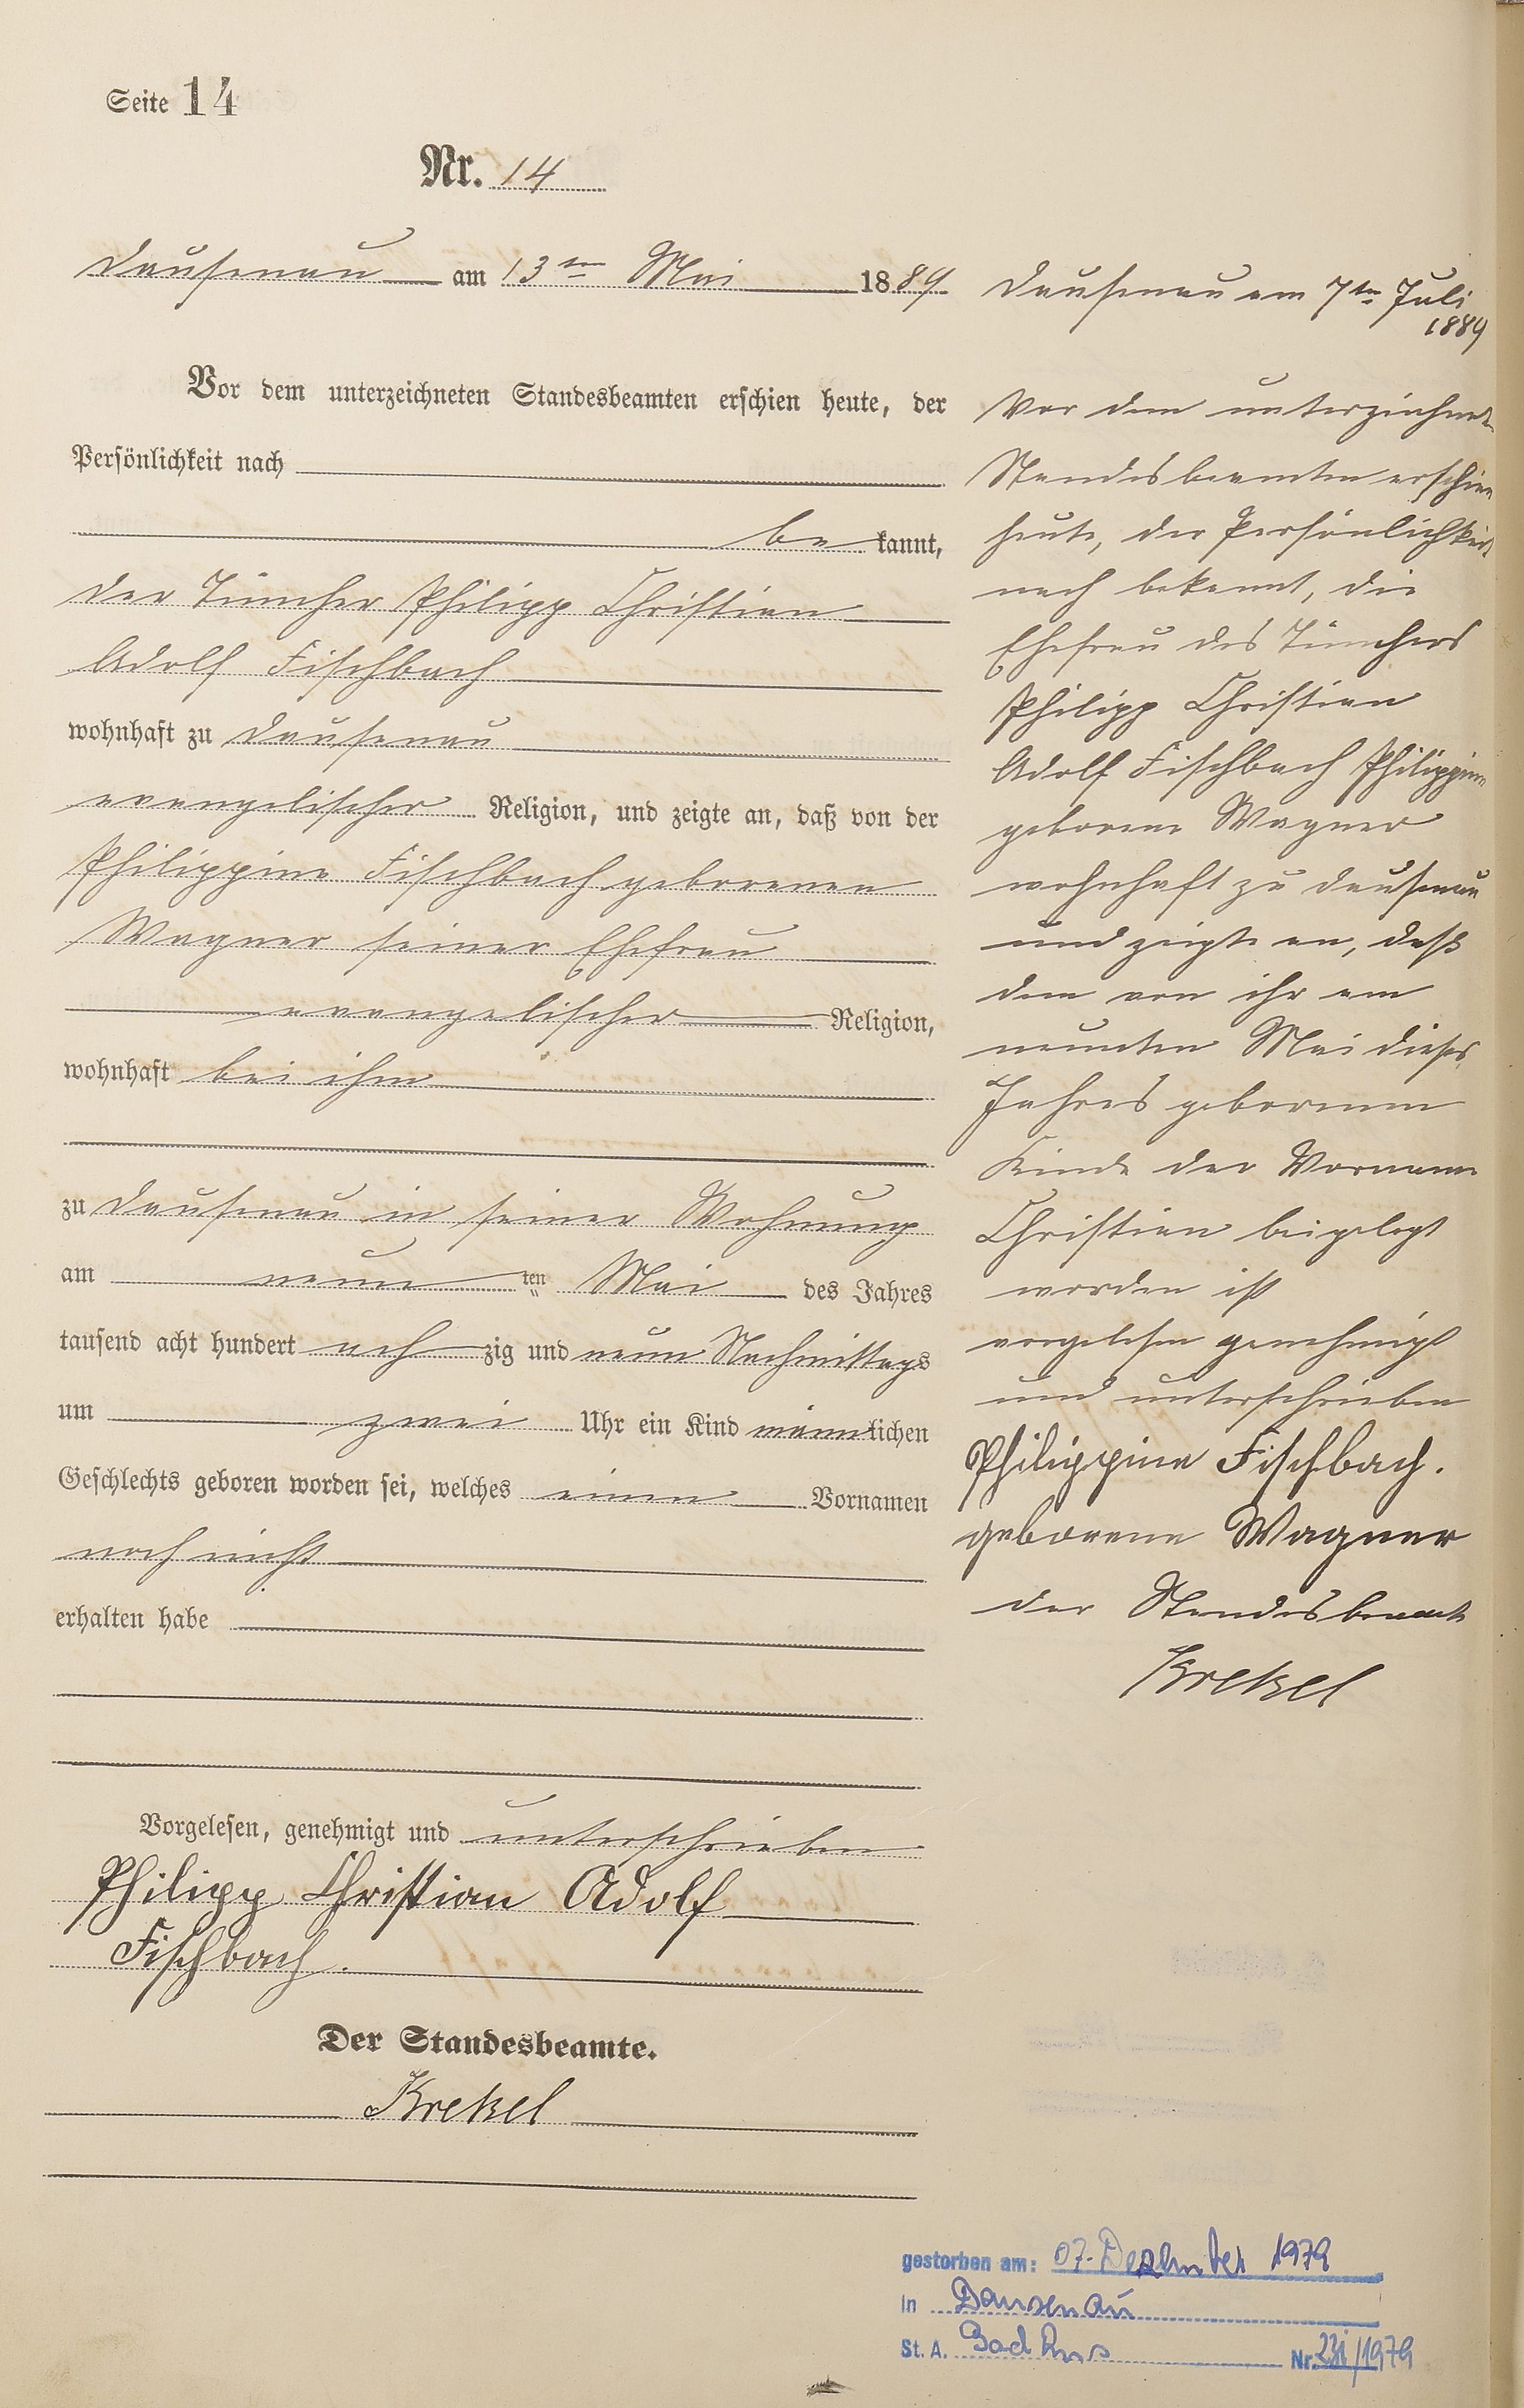 Seite 14
Nr. 14
Dausenau am 13ten Mai 1889
Vor dem unterzeichneten Standesbeamten erschien heute, der
Persönlichkeit nach
bekannt,
der Tüncher Philipp Christian
Adolf Fischbach
wohnhaft zu Dausenau
evangelischer Religion, und zeigte an, daß von der
Philippine Fischbach geborenen
Wagner seiner Ehefrau
evangelischer Religion,
wohnhaft bei ihm
zu Dausenau in seiner Wohnung
am neun ten Mai des Jahres
tausend acht hundert achzig und neun Nachmittags
um zwei Uhr ein Kind männlichen
Geschlechts geboren worden sei, welches einen Vornamen
noch nicht
erhalten habe
Vorgelesen, genehmigt und unterschrieben
Philipp Christian Adolf
Fischbach.
Der Standesbeamte.
Krekel
Dausenau am 7ten Juli
1889
Vor dem unterzeichneten
Standesbeamten erschien
heute, der Persönlichkeit
nach bekannt, die
Ehefrau des Tünchers
Philipp Christian
Adolf Fischbach Philippine
geborene Wagner
wohnhaft zu Dausenau
und zeigte an, daß
dem von ihr am
neunten Mai dieses
Jahres geborenen
Kinde der Vorname
Christian beigelegt
worden ist
vorgelesen genehmigt
und unterschrieben
Philippine Fischbach.
geborene Wagner
der Standesbeamte
Krekel
gestorben am: 07. Dezember 1979
in Dausenau
St. A. Bad Ems Nr. /1979